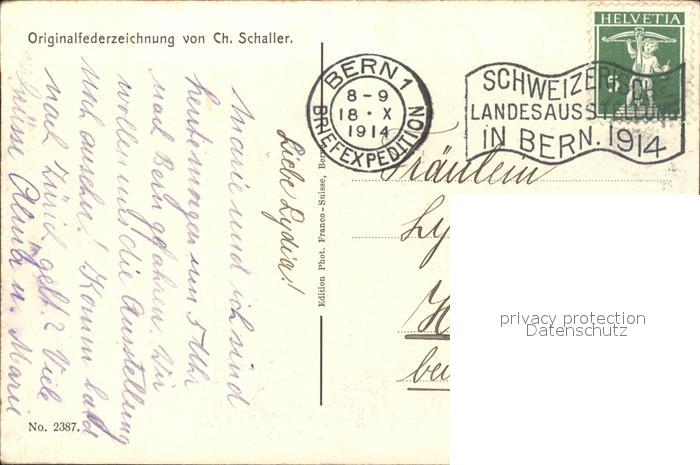 Originalfederzeichnung von Ch. Schaller.
HELVETIA
5
BERN 1
8-9
18 · X
1914
BRIEFEXPEDITION
SCHWEIZERISCHE
LANDESAUSSTELLUNG
IN BERN. 1914
Liebe Lydia!
Marie und ich sind
heute morgen um 5 Uhr
nach Bern gefahren. Wir
wollen uns die Ausstellung
noch ansehn! Komm bald
nach Zürich, gelt? Viele
Grüsse u. Marie
Edition Phot. Franco-Suisse, Berne
Fräulein
Ly
H
be
privacy protection
Datenschutz
No. 2387.